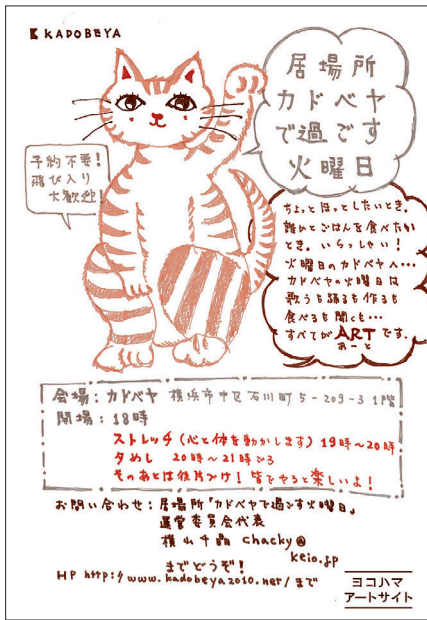 KADOBEYA
居場所
カドベヤ
で過ごす
火曜日
予約不要!
飛び入り
大歓迎!
ちょっとほっとしたいとき。
誰かとごはんを食べたい
とき。いらっしゃい!
火曜日のカドベヤへ…
カドベヤの火曜日は
歌うも踊るも作るも
食べるも聞くも…
すべてがARTです。
あーと
会場:カドベヤ 横浜市中区石川町5-209-3 1階
開場:18時
ストレッチ(心と体を動かします)19時~20時
夕めし 20時~21時ごろ
そのあとは後片づけ!皆でやると楽しいよ!
お問い合わせ:居場所「カドベヤで過ごす火曜日」
運営委員会代表
横山千晶 chacky@
keio.jp
までどうぞ!
HP http://www.kadobeya2010.net/まで
ヨコハマ
アートサイト